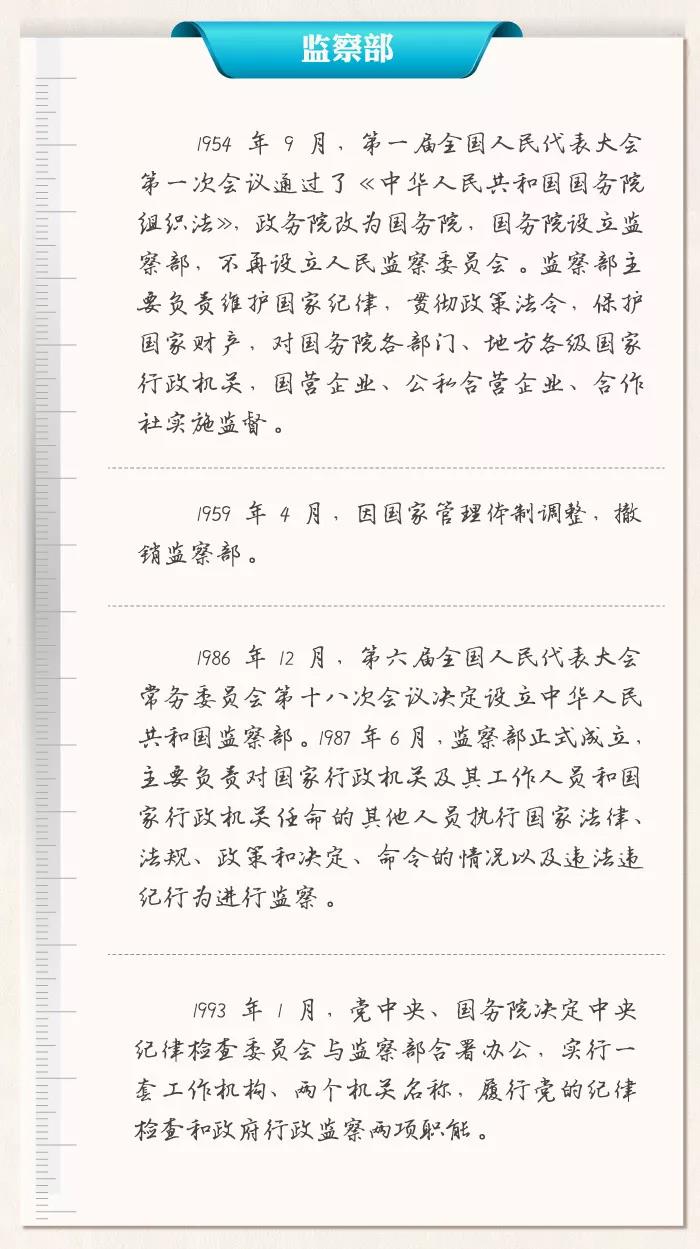 监察部
1954 年 9 月，第一届全国人民代表大会
第一次会议通过了《中华人民共和国国务院
组织法》，政务院改为国务院，国务院设立监
察部，不再设立人民监察委员会。监察部主
要负责维护国家纪律，贯彻政策法令，保护
国家财产，对国务院各部门、地方各级国家
行政机关，国营企业、公私合营企业、合作
社实施监督。
1959 年 4 月，因国家管理体制调整，撤
销监察部。
1986 年 12 月，第六届全国人民代表大会
常务委员会第十八次会议决定设立中华人民
共和国监察部。1987 年 6 月，监察部正式成立，
主要负责对国家行政机关及其工作人员和国
家行政机关任命的其他人员执行国家法律、
法规、政策和决定、命令的情况以及违法违
纪行为进行监察。
1993 年 1 月，党中央、国务院决定中央
纪律检查委员会与监察部合署办公，实行一
套工作机构、两个机关名称，履行党的纪律
检查和政府行政监察两项职能。